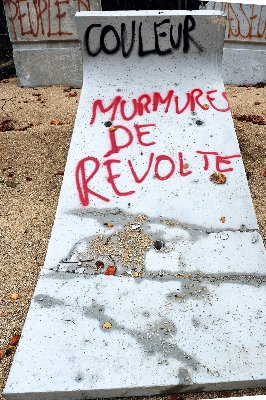 PEUPLE
COULEUR
MURMURE
DE
RÉVOLTE